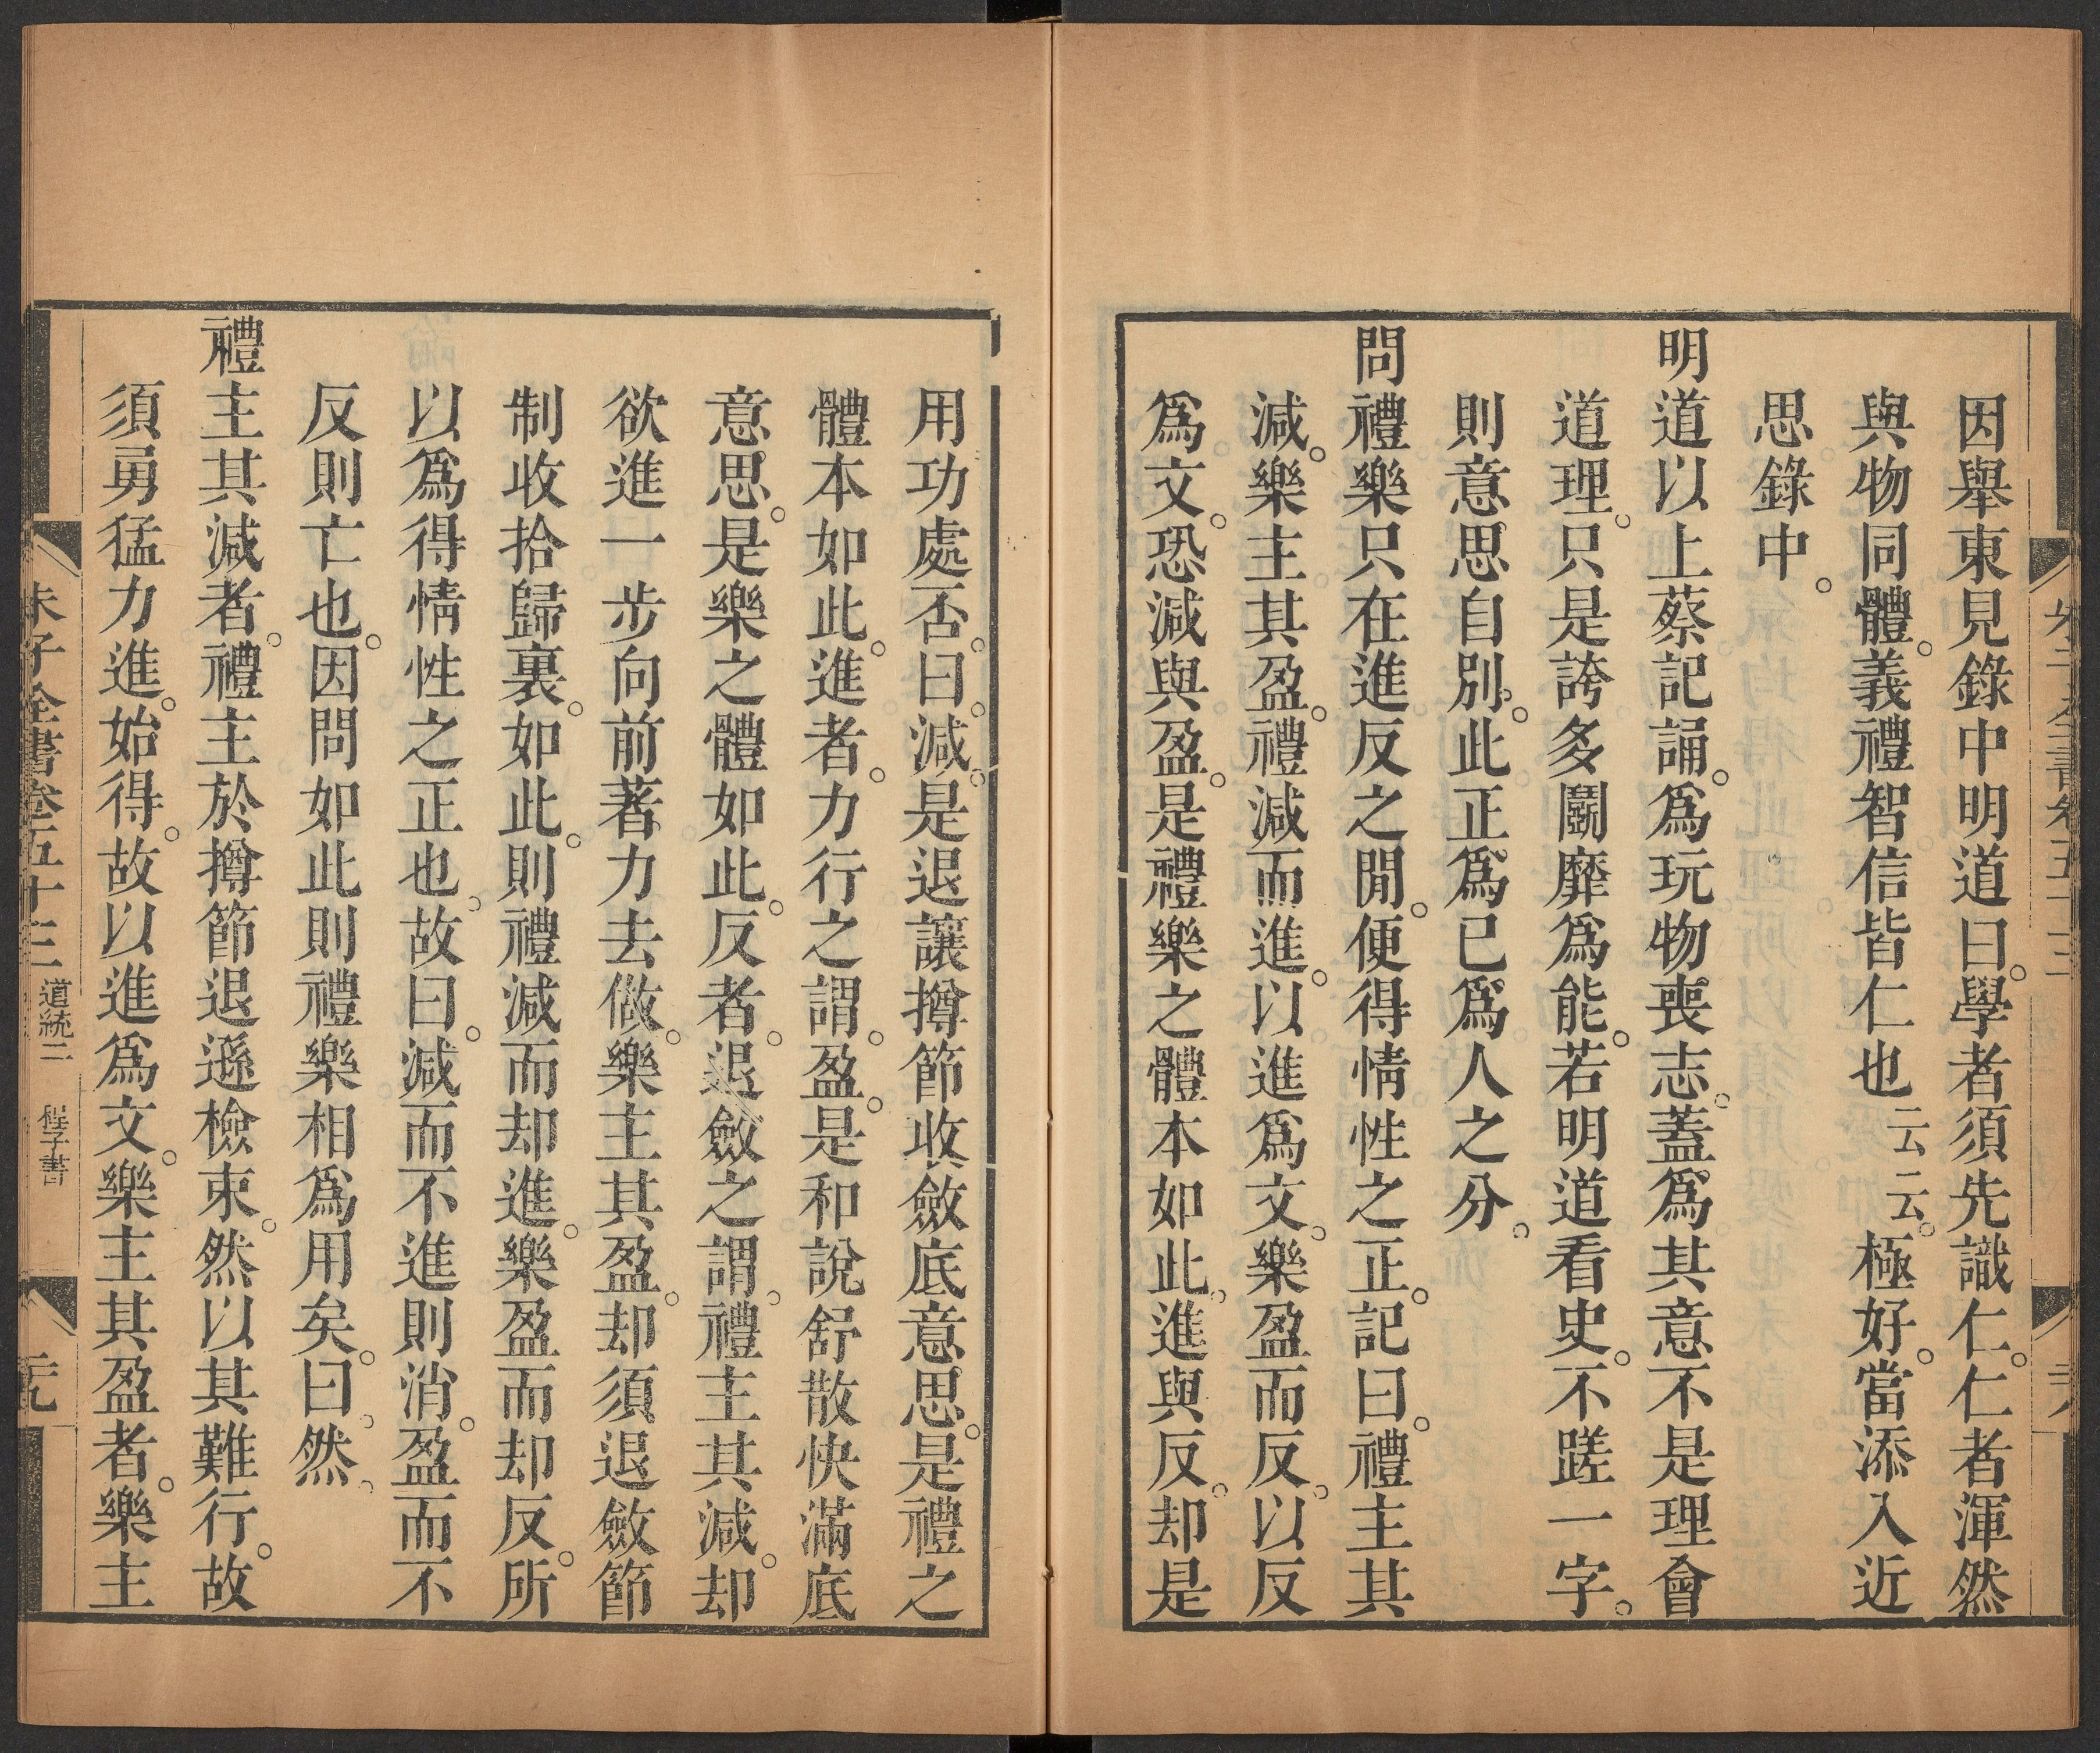 因舉東見錄中明道曰。學者須先識仁。仁者渾然
與物同體。義禮智信皆仁也云云。極好。當添入近
思錄中。
明道以上蔡記誦。爲玩物喪志。蓋爲其意不是理會
道理。只是誇多鬭靡爲能。若明道看史。不蹉一字。
則意思自別。此正爲已爲人之分。
問禮樂只在進反之閒。便得情性之正。記曰。禮主其
減。樂主其盈。禮減而進。以進爲文。樂盈而反。以反
爲文。恐減與盈。是禮樂之體本如此。進與反。却是
用功處否。曰。減。是退讓撙節收斂底意思。是禮之
體本如此。進者。力行之謂。盈。是和說舒散快滿底
意思。是樂之體如此。反者。退斂之謂。禮主其減。却
欲進一步向前著力去做。樂主其盈。却須退斂節
制收拾歸裏。如此。則禮減而却進。樂盈而却反。所
以爲得情性之正也。故曰。減而不進則消。盈而不
反則亡也。因問如此則禮樂相爲用矣。曰。然。
禮主其減者。禮主於撙節退遜檢束。然以其難行。故
須勇猛力進。始得。故以進爲文。樂主其盈者。樂主
朱子全書卷五十三 道統二 程子書 二九